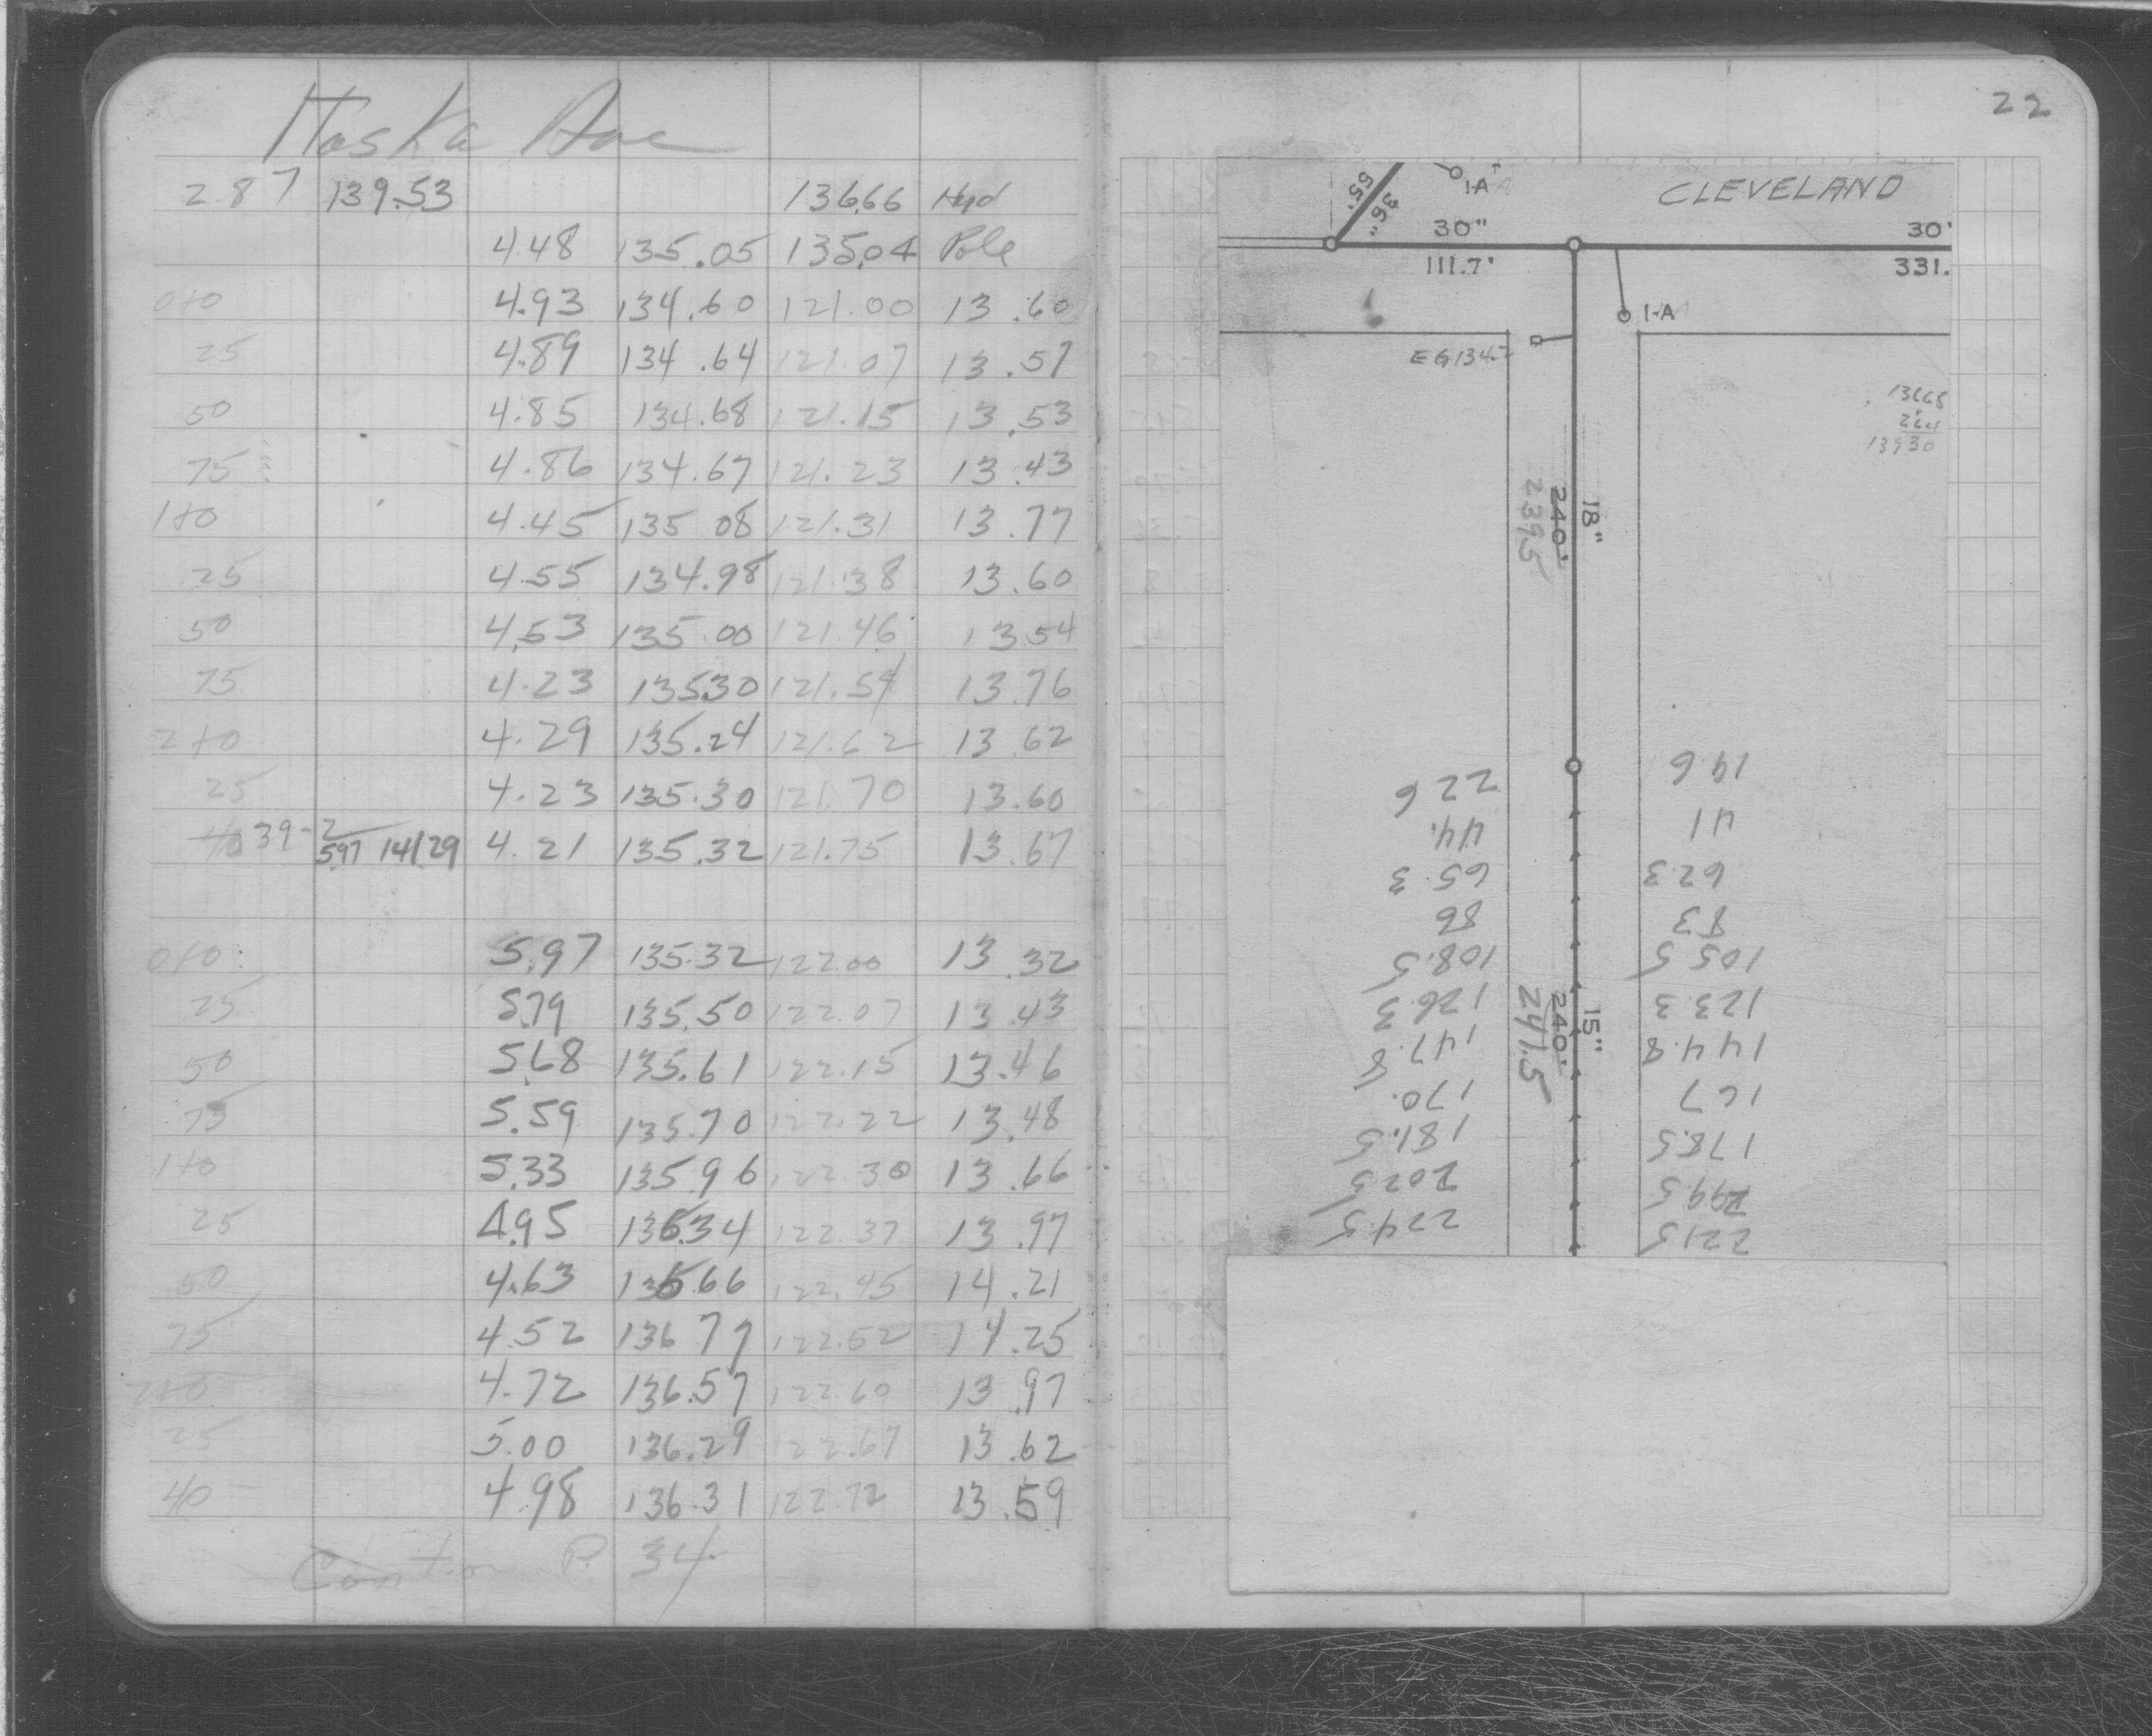 Itaska Ave
2.87 139.53 136.66 Hyd
4.48 135.05 135.04 Pole
0+0 4.93 134.60 121.00 13.60
25 4.89 134.64 121.07 13.57
50 4.85 134.68 121.15 13.53
75 4.86 134.67 121.23 13.43
1+0 4.45 135.08 121.31 13.77
25 4.55 134.98 121.38 13.60
50 4.53 135.00 121.46 13.54
75 4.23 135.30 121.54 13.76
2+0 4.29 135.24 121.62 13.62
25 4.23 135.30 121.70 13.60
40 39- 2 5.97 141.29 4.21 135.32 121.75 13.67
0+0 5.97 135.32 122.00 13.32
25 5.79 135.50 122.07 13.43
50 5.68 135.61 122.15 13.46
75 5.59 135.70 122.22 13.48
1+0 5.33 135.96 122.30 13.66
25 4.95 136.34 122.37 13.97
50 4.63 136.66 122.45 14.21
75 4.52 136.77 122.52 14.25
2+0 4.72 136.57 122.60 13.97
25 5.00 136.29 122.67 13.62
40 4.98 136.31 122.72 13.59
P. 34
22
1-A
CLEVELAND
55'
36"
30"
30'
111.7'
331.
1-A
13668
264
13930
18"
240'
239.5
22 6
19 6
44.
41
65.3
62 3
86
83
108.5
105 5
126.3
123 3
15"
240'
241.5
147.8
144.8
170.
167
181.5
178.5
202 5
199 5
224.5
221 5